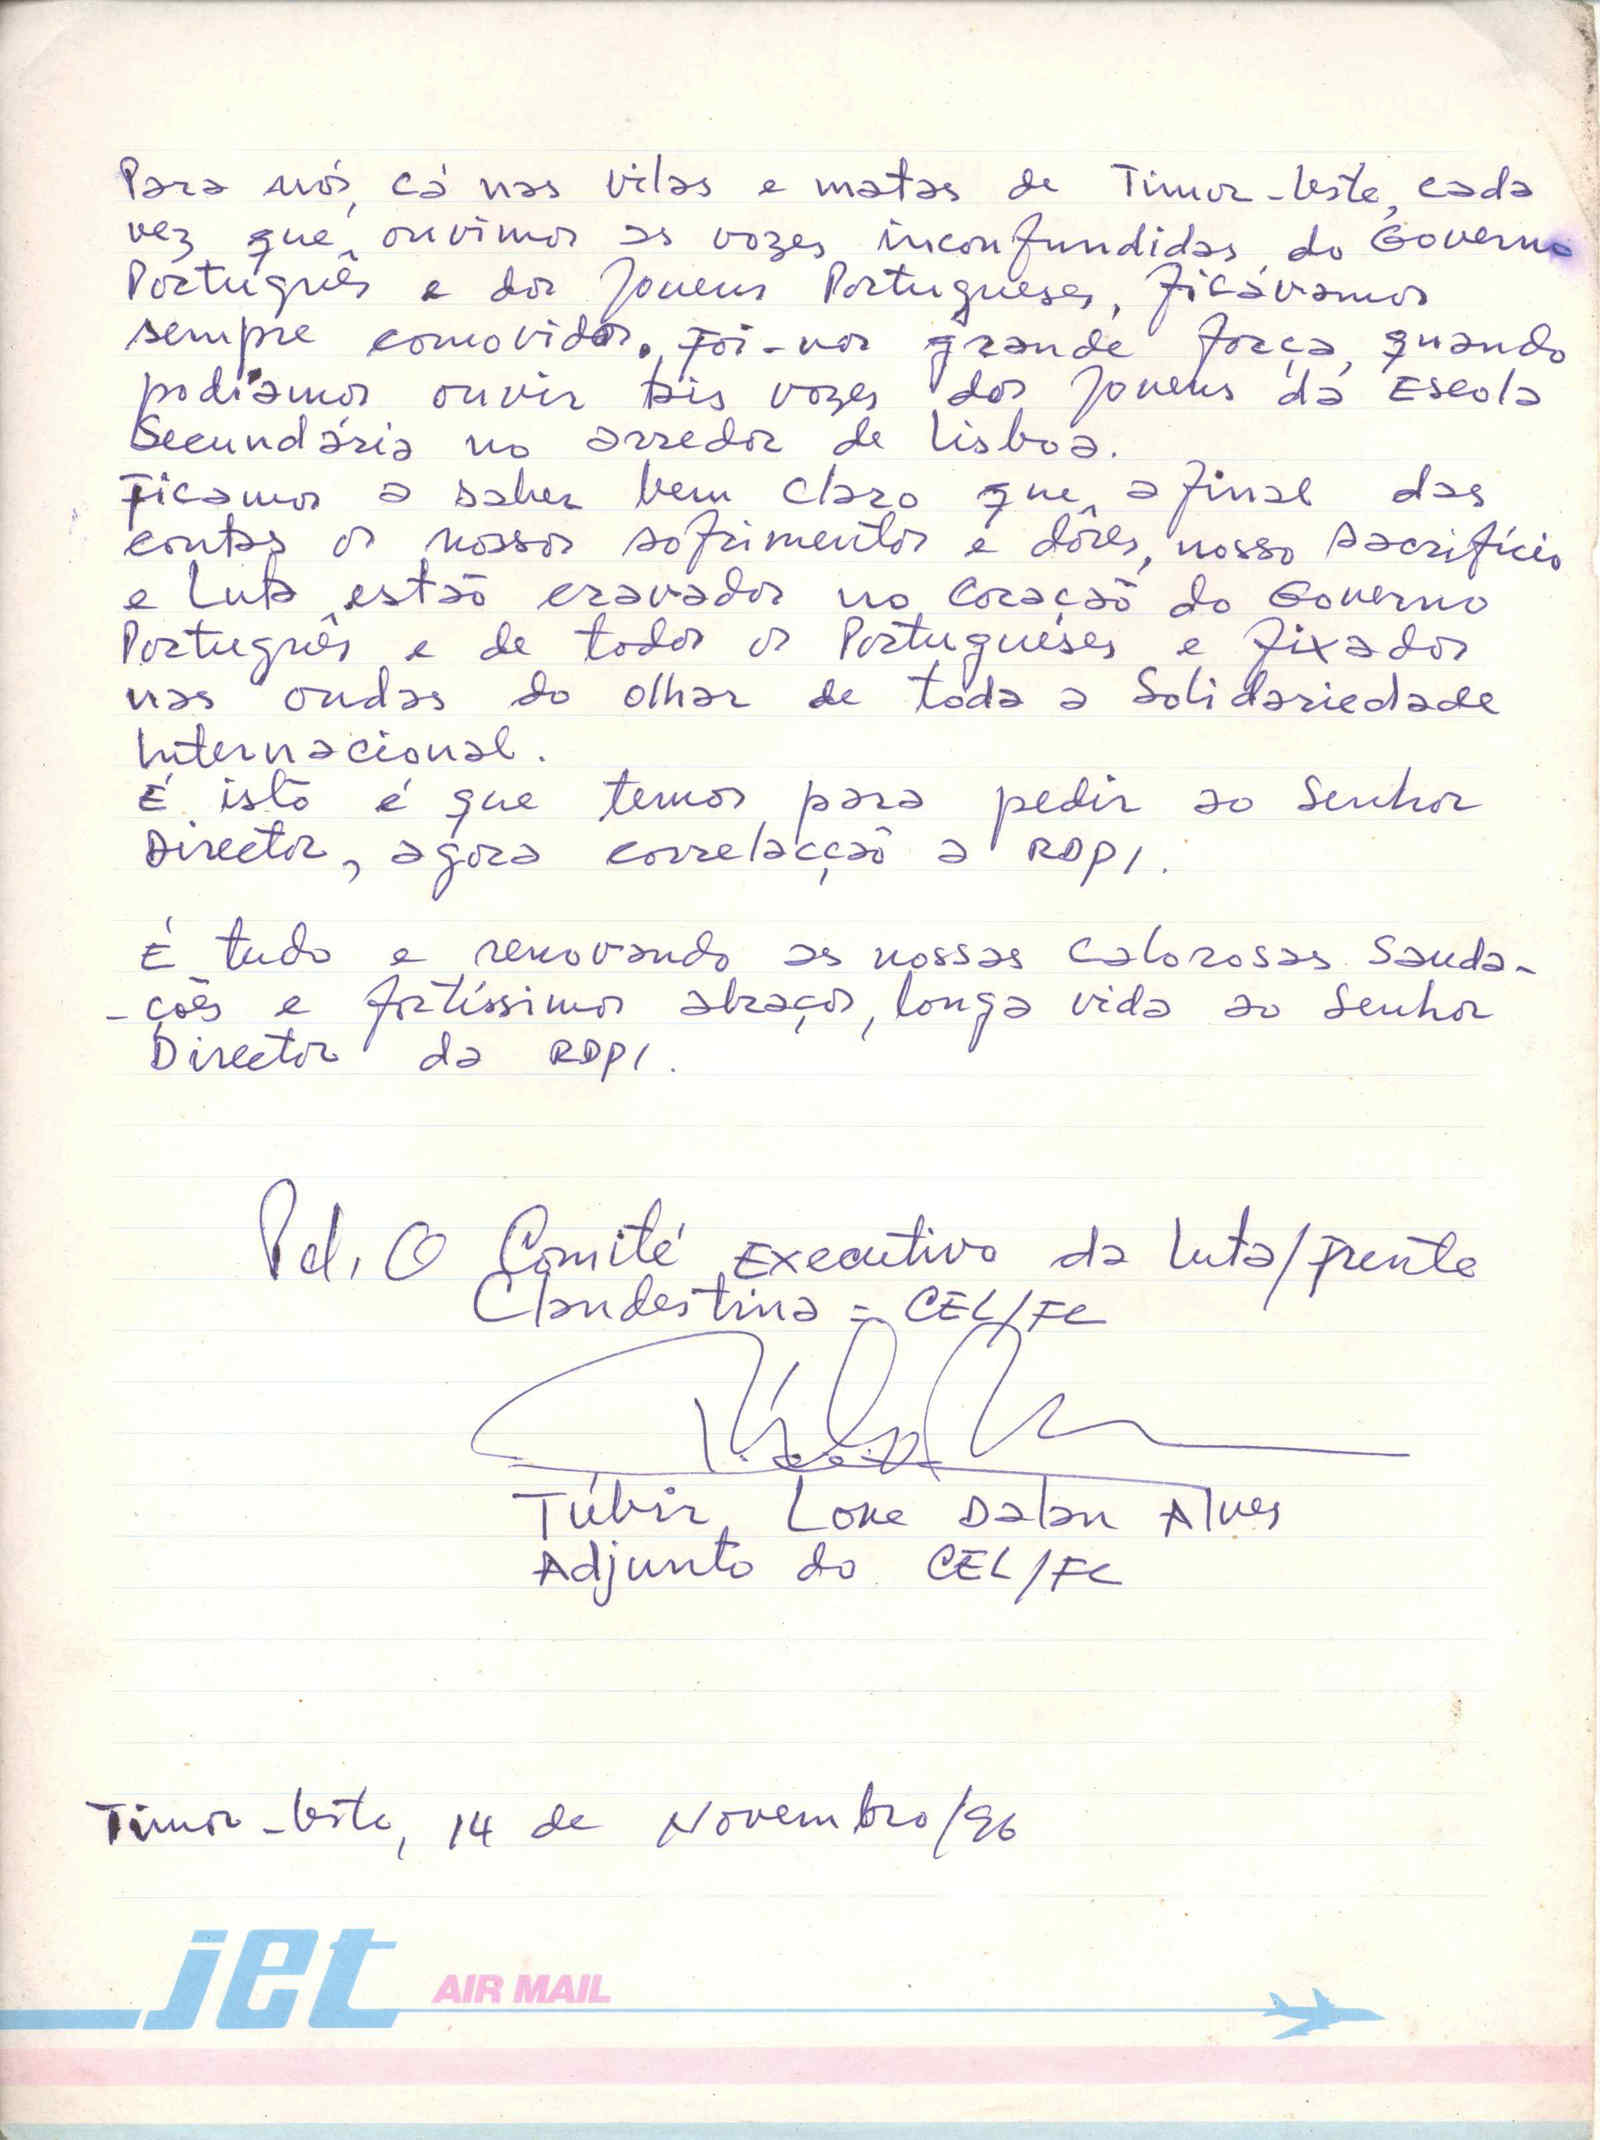 Para nós, cá nas vilas e matas de Timor-Leste, cada
vez que, ouvimos as vozes inconfundidas do Governo
Português e dos Jovens Portugueses, ficávamos
sempre comovidos. Foi-nos grande força, quando
podíamos ouvir tais vozes dos Jovens da Escola
Secundária no arredor de Lisboa.
Ficamos a saber bem claro que, afinal das
contas os nossos sofrimentos e dôres, nosso sacrifício
e Luta estão cravados no coração do Governo
Português e de todos os Portugueses e fixados
nas ondas do olhar de toda a Solidariedade
Internacional.
É isto é que temos para pedir ao Senhor
Director, agora correlacção a RDPI.
É tudo e renovando as nossas calorosas Sauda-
-ções e fortíssimos abraços, longa vida ao Senhor
Director da RDPI.
Pel, O Comité Executivo da Luta/Frente
Clandestina = CEL/FC
Túbir, Loke Dalan Alves
Adjunto do CEL/FC
Timor-Leste, 14 de Novembro/96
jet AIR MAIL